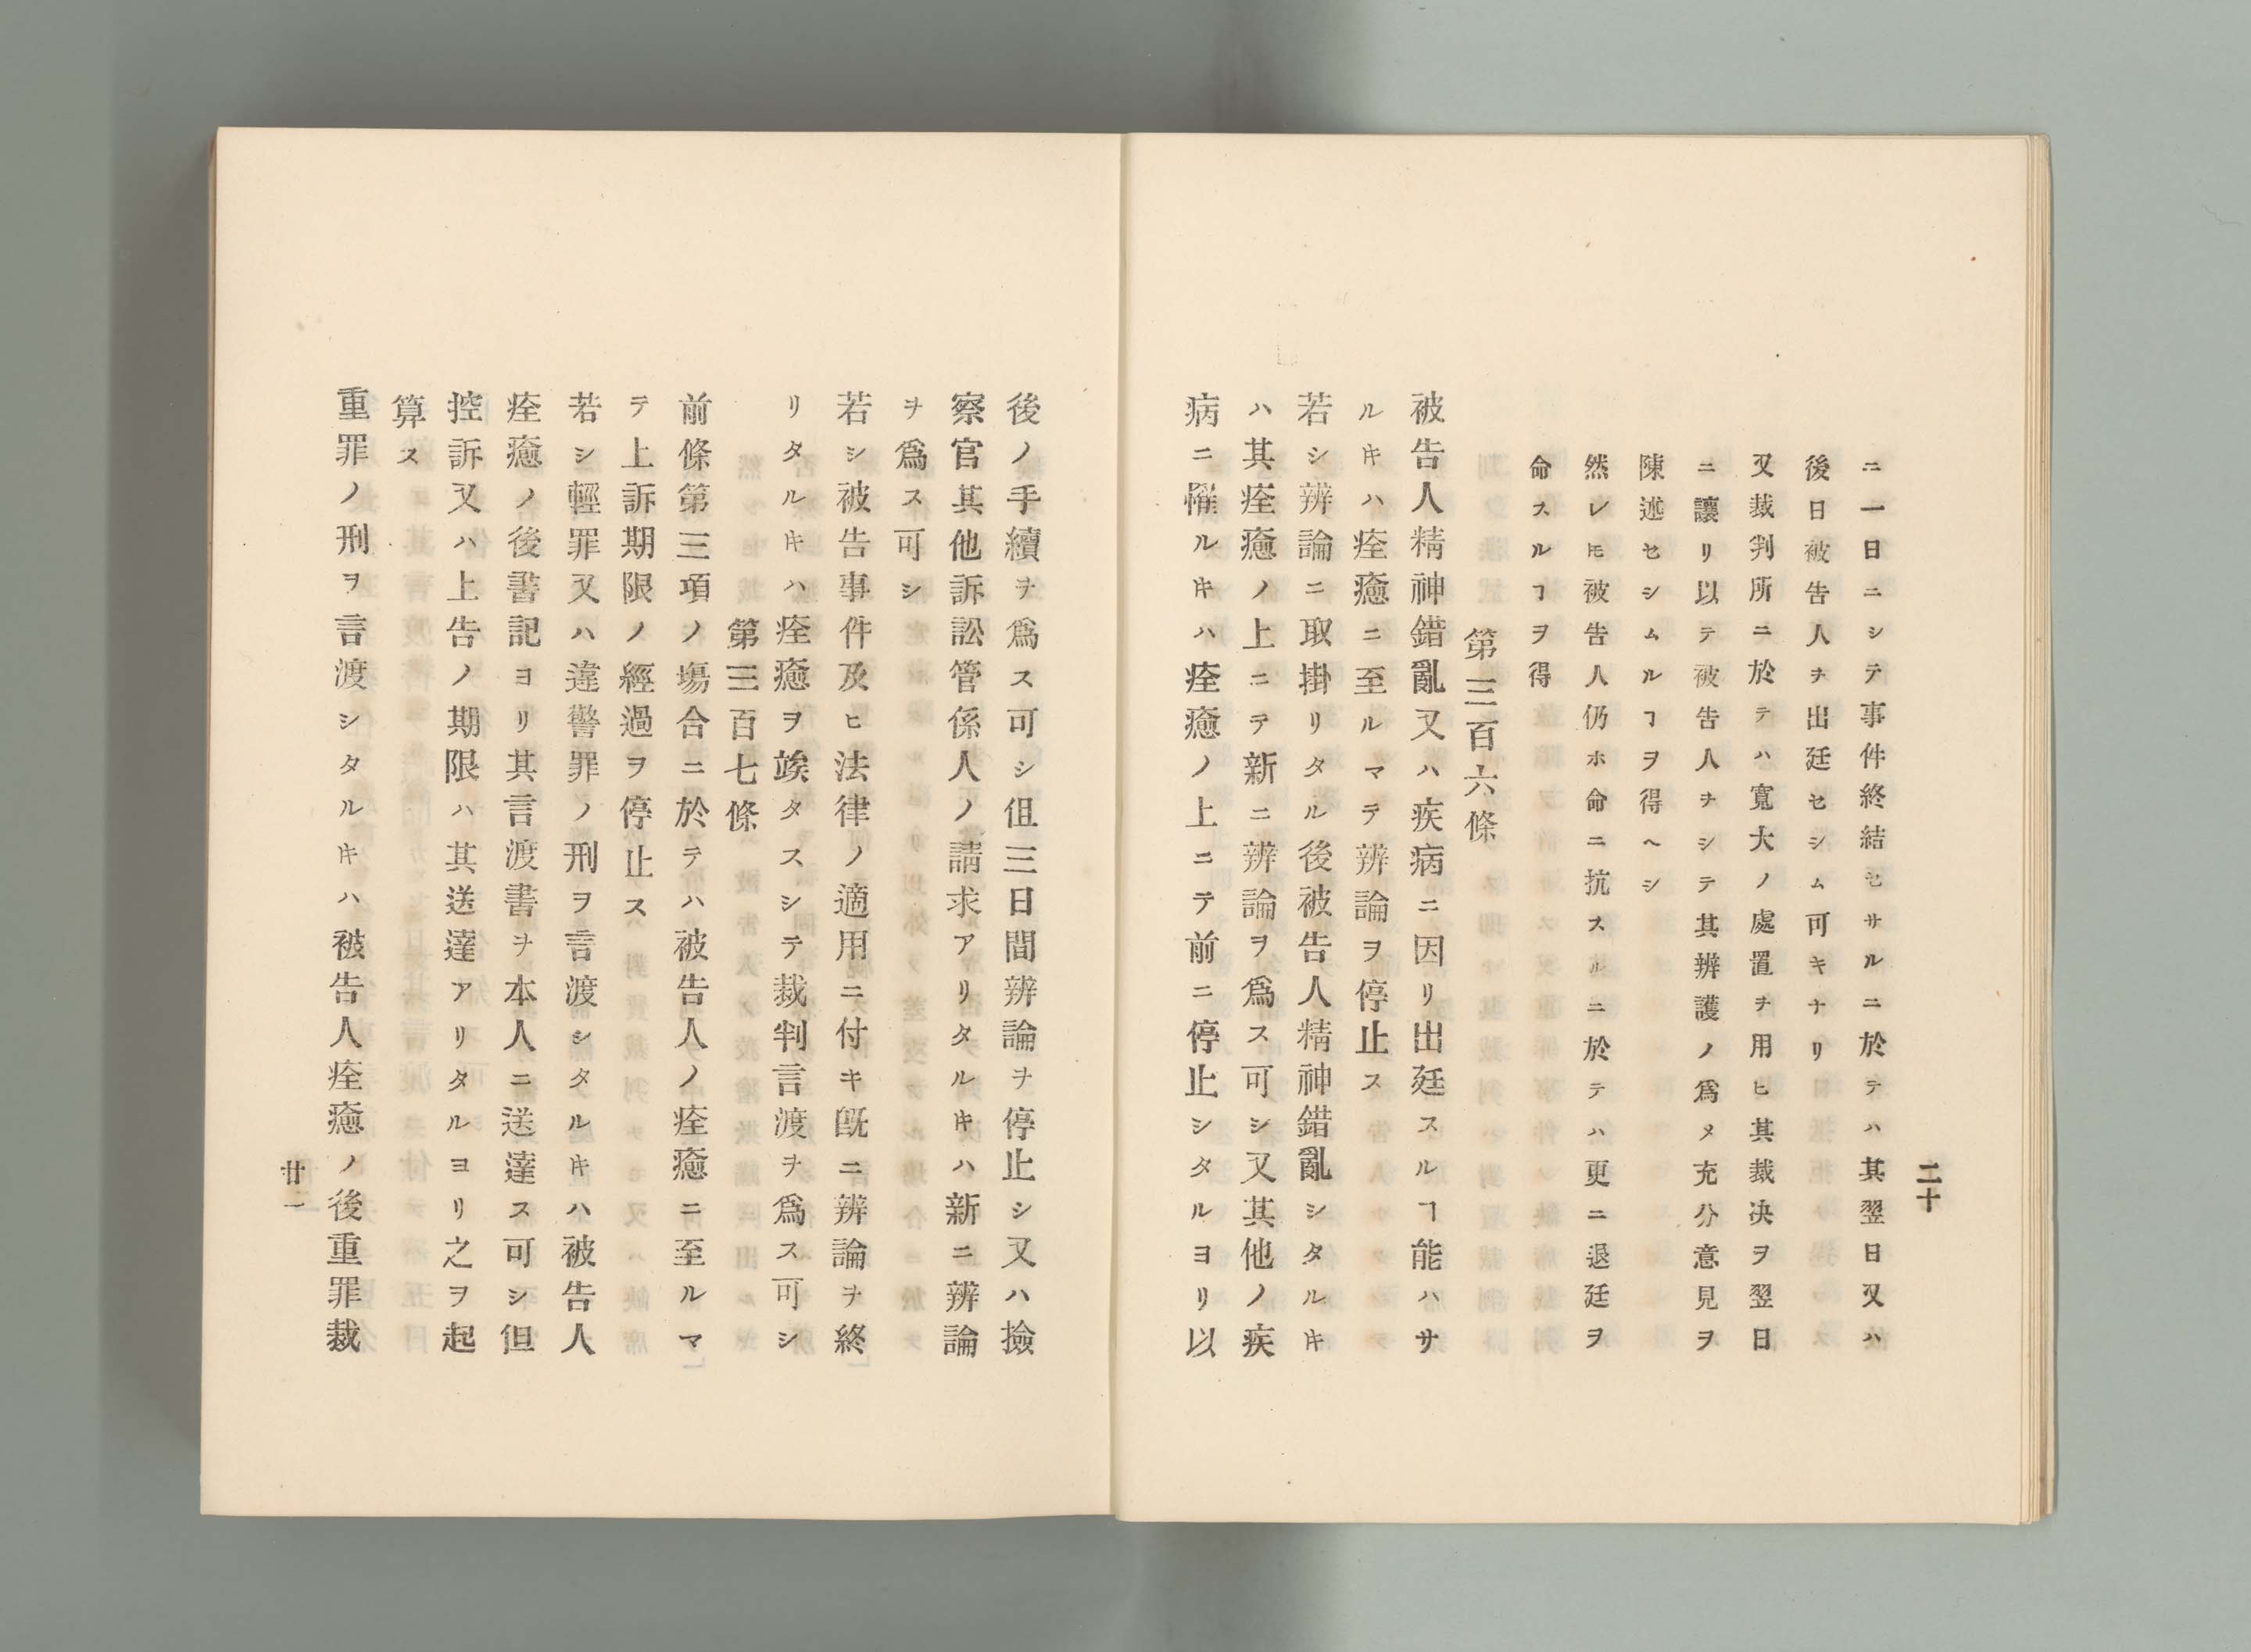 二十
ニ一日ニシテ事件終結セサルニ於テハ其翌日又ハ
後日被告人ヲ出廷セシム可キナリ
又裁判所ニ於テハ寬大ノ處置ヲ用ヒ其裁决ヲ翌日
ニ讓リ以テ被告人ヲシテ其辨護ノ爲メ充分意見ヲ
陳述セシムルヿヲ得ヘシ
然レ𪜈被告人仍ホ命ニ抗スルニ於テハ更ニ退廷ヲ
命スルヿヲ得
第三百六條
被告人精神錯亂又ハ疾病ニ因リ出廷スルヿ能ハサ
ルキハ痊癒ニ至ルマテ辨論ヲ停止ス
若シ辨論ニ取掛リタル後被告人精神錯亂シタルキ
ハ其痊癒ノ上ニテ新ニ辨論ヲ爲ス可シ又其他ノ疾
病ニ罹ルキハ痊癒ノ上ニテ前ニ停止シタルヨリ以
後ノ手續ヲ爲ス可シ伹三日間辨論ヲ停止シ又ハ撿
察官其他訴訟管係人ノ請求アリタルキハ新ニ辨論
ヲ爲ス可シ
若シ被告事件及ヒ法律ノ適用ニ付キ既ニ辨論ヲ終
リタルキハ痊癒ヲ竢タスシテ裁判言渡ヲ爲ス可シ
第三百七條
前條第三項ノ塲合ニ於テハ被告人ノ痊癒ニ至ルマ
テ上訴期限ノ經過ヲ停止ス
若シ輕罪又ハ違警罪ノ刑ヲ言渡シタルキハ被告人
痊癒ノ後書記ヨリ其言渡書ヲ本人ニ送達ス可シ但
控訴又ハ上告ノ期限ハ其送達アリタルヨリ之ヲ起
算ス
重罪ノ刑ヲ言渡シタルキハ被告人痊癒ノ後重罪裁
廿一